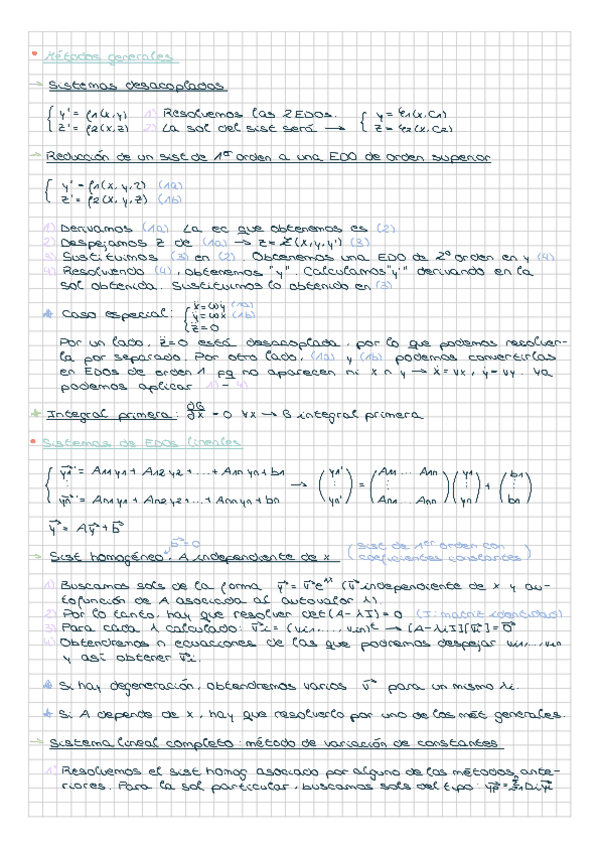 • Métodos generales
→ Sistemas desacoplados
{ y' = f1(x,y) 1) Resolvemos las 2 EDOs. { y = φ1(x,C1)
z' = f2(x,z) 2) La sol del sist será → z = φ2(x,C2)
→ Reducción de un sist de 1er orden a una EDO de orden superior
{ y' = f1(x,y,z) (1a)
z' = f2(x,y,z) (1b)
1) Derivamos (1a). La ec que obtenemos es (2)
2) Despejamos z de (1a) → z = z(x,y,y') (3)
3) Sustituimos (3) en (2). Obtenemos una EDO de 2º orden en y (4)
4) Resolvendo (4), obtenemos "y". Calculamos "y'" derivando en la
sol obtenida. Sustituimos lo obtenido en (3)
Caso especial: { ẍ = ωẏ (1a)
ÿ = ωẋ (1b)
z̈ = 0
Por un lado, z̈=0 está desacoplada, por lo que podemos resolver-
la por separado. Por otro lado, (1a) y (1b) podemos convertirlas
en EDOs de orden 1 pq no aparecen ni x n y → ẋ = vx, ẏ = vy. Ya
podemos aplicar 1) - 4)
Integral primera: ∂G/∂x = 0 ∀x → G integral primera
• Sistemas de EDOs lineales
{ y1' = A11 y1 + A12 y2 + ... + A1n yn + b1
⋮ → (y1' ⋮ yn') = (A11 ... A1n ⋮ An1 ... Ann)(y1 ⋮ yn) + (b1 ⋮ bn)
yn' = An1 y1 + An2 y2 + ... + Ann yn + bn
y⃗' = Ay⃗ + b⃗
→ Sist homogéneo, b⃗=0 A independiente de x (sist de 1er orden con
coeficientes constantes)
1) Buscamos sols de la forma y⃗ = v⃗e^λx (v⃗ independiente de x y au-
tofunción de A asociada al autovalor λ).
2) Por lo tanto, hay que resolver det(A-λI)=0 (I: matriz identidad)
3) Para cada λ calculado: v⃗i = (vi1, ..., vin)t → [A-λiI][v⃗i] = 0⃗
4) Obtendremos n ecuaciones de las que podremos despejar vi1,...,vin
y así obtener v⃗i.
Si hay degeneración, obtendremos varios v⃗ para un mismo λi.
Si A depende de x, hay que resolverlo por uno de los mét generales.
→ Sistema lineal completo: método de variación de constantes
1) Resolvemos el sist homog asociado por alguno de los métodos ante-
riores. Para la sol particular, buscamos sols del tipo: